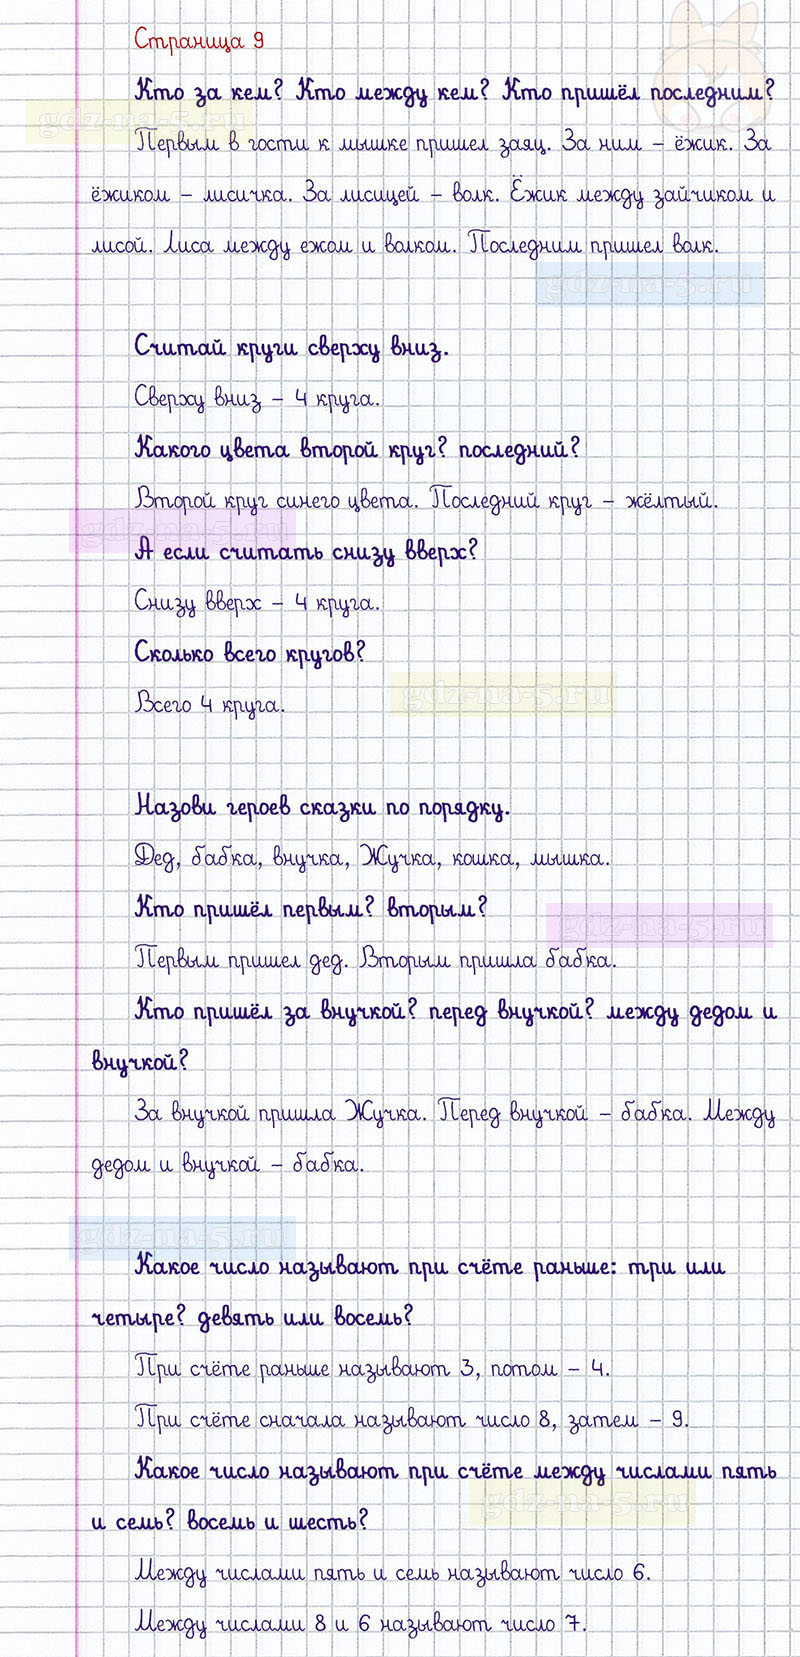 Страница 9
Кто за кем? Кто между кем? Кто пришёл последним?
gdz-na-5.ru
Первым в гости к мышке пришел заяц. За ним – ёжик. За
ёжиком – лисичка. За лисицей – волк. Ёжик между зайчиком и
лисой. Лиса между ежом и волком. Последним пришел волк.
gdz-na-5.ru
Считай круги сверху вниз.
Сверху вниз – 4 круга.
Какого цвета второй круг? последний?
Второй круг синего цвета. Последний круг – жёлтый.
gdz-na-5.ru
А если считать снизу вверх?
Снизу вверх – 4 круга.
Сколько всего кругов?
gdz-na-5.ru
Всего 4 круга.
Назови героев сказки по порядку.
Дед, бабка, внучка, Жучка, кошка, мышка.
Кто пришёл первым? вторым?
gdz-na-5.ru
Первым пришел дед. Вторым пришла бабка.
Кто пришёл за внучкой? перед внучкой? между дедом и
внучкой?
За внучкой пришла Жучка. Перед внучкой – бабка. Между
дедом и внучкой – бабка.
gdz-na-5.ru
Какое число называют при счёте раньше: три или
четыре? девять или восемь?
При счёте раньше называют 3, потом – 4.
При счёте сначала называют число 8, затем – 9.
Какое число называют при счёте между числами пять
gdz-na-5.ru
и семь? восемь и шесть?
Между числами пять и семь называют число 6.
Между числами 8 и 6 называют число 7.